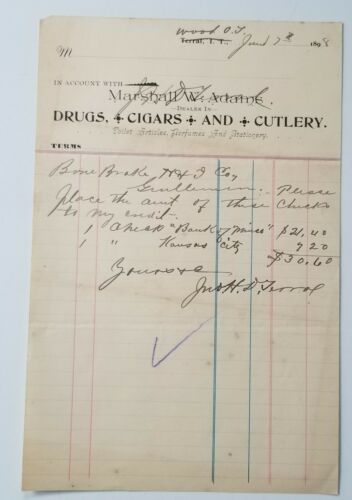 Wood O.T
Terral, I. T., Jan 7th 1898
M
IN ACCOUNT WITH
Marshall W. Adams
DEALER IN
DRUGS, CIGARS AND CUTLERY.
Toilet Articles, Perfumes And Stationery.
TERMS
Bone Brake, H & I Co,
Gentlemen: Please
Place the amt of these Checks
to my credit.
1 Check "Bank of Minco" $21,40
1 " Kansas City 920
$30.60
Yours &c
Jno H. D. Terral